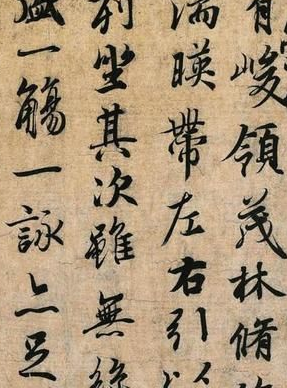 有峻領茂林脩
湍暎帶左右引以
列坐其次雖無絲
盛一觴一詠亦足